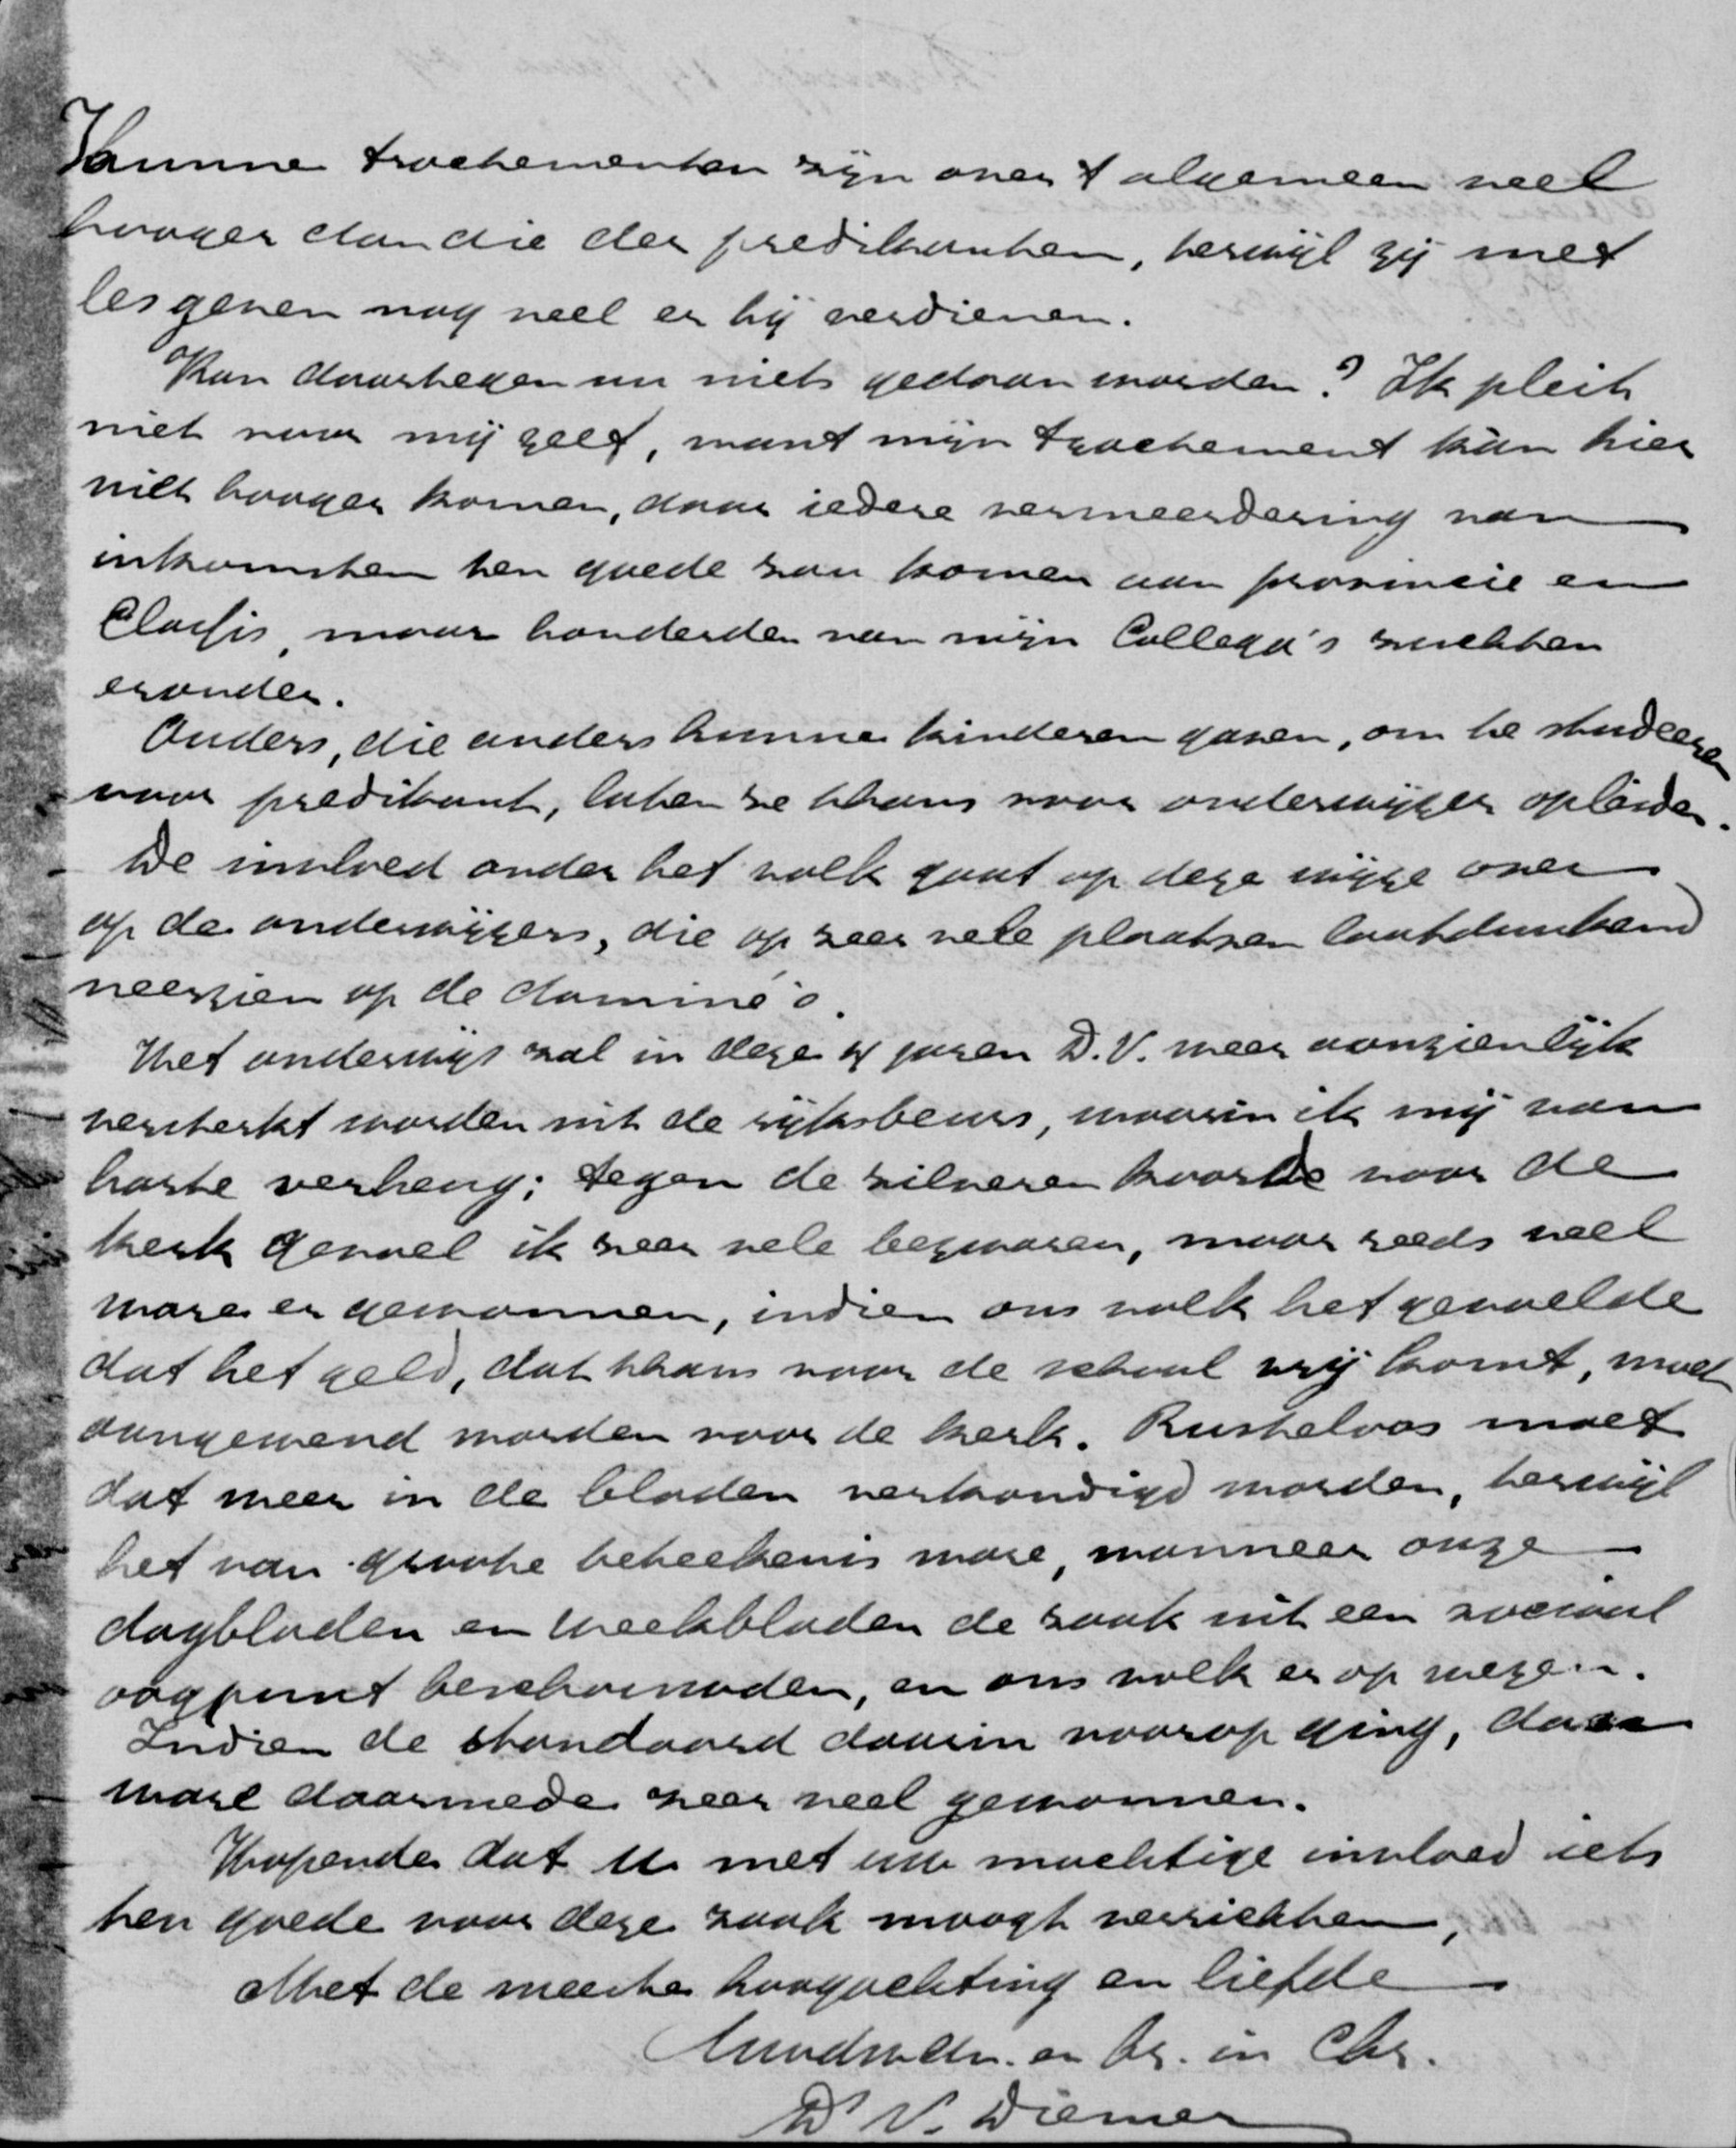 Hunne tractementen zijn over 't algemeen veel
hooger dan die der predikanten, terwijl zij met
lesgeven nog veel er bij verdienen.
Kan daartegen nu niets gedaan worden? Ik pleit
niet voor mij zelf, want mijn tractement kàn hier
niet hooger komen, daar iedere vermeerdering van
inkomsten ten goede zou komen aan provincie en
Classis, maar honderden van mijn Collega's zuchten
eronder.
Ouders, die anders hunne kinderen gaven, om te studeeren
voor predikant, laten ze thans voor onderwijzer opleiden.
De invloed onder het volk gaat op deze wijze over
op de onderwijzers, die op zeer vele plaatsen laatdunkend
neerzien op de dominé's.
Het onderwijs zal in deze 4 jaren D.V. meer aanzienlijk
versterkt worden uit de rijksbeurs, waarin ik mij van
harte verheug; tegen de zilveren koorde voor de
kerk gevoel ik zeer vele bezwaren, maar reeds veel
ware er gewonnen, indien ons volk het gevoelde
dat het geld, dat thans voor de school vrij komt, moet
aangewend worden voor de kerk. Rusteloos moet
dat meer in de bladen verkondigd worden, terwijl
het van groote beteekenis ware, wanneer onze
dagbladen en weekbladen de zaak uit een sociaal
oogpunt beschouwden, en ons volk er op wezen.
Indien de standaard daarin voorop ging, dan
ware daarmede zeer veel gewonnen.
Hopende dat U met uw machtige invloed iets
ten goede voor deze zaak moogt verrichten,
Met de meeste hoogachting en liefde
Uw dw dn. en br. in Chr.
Ds N. Diemer